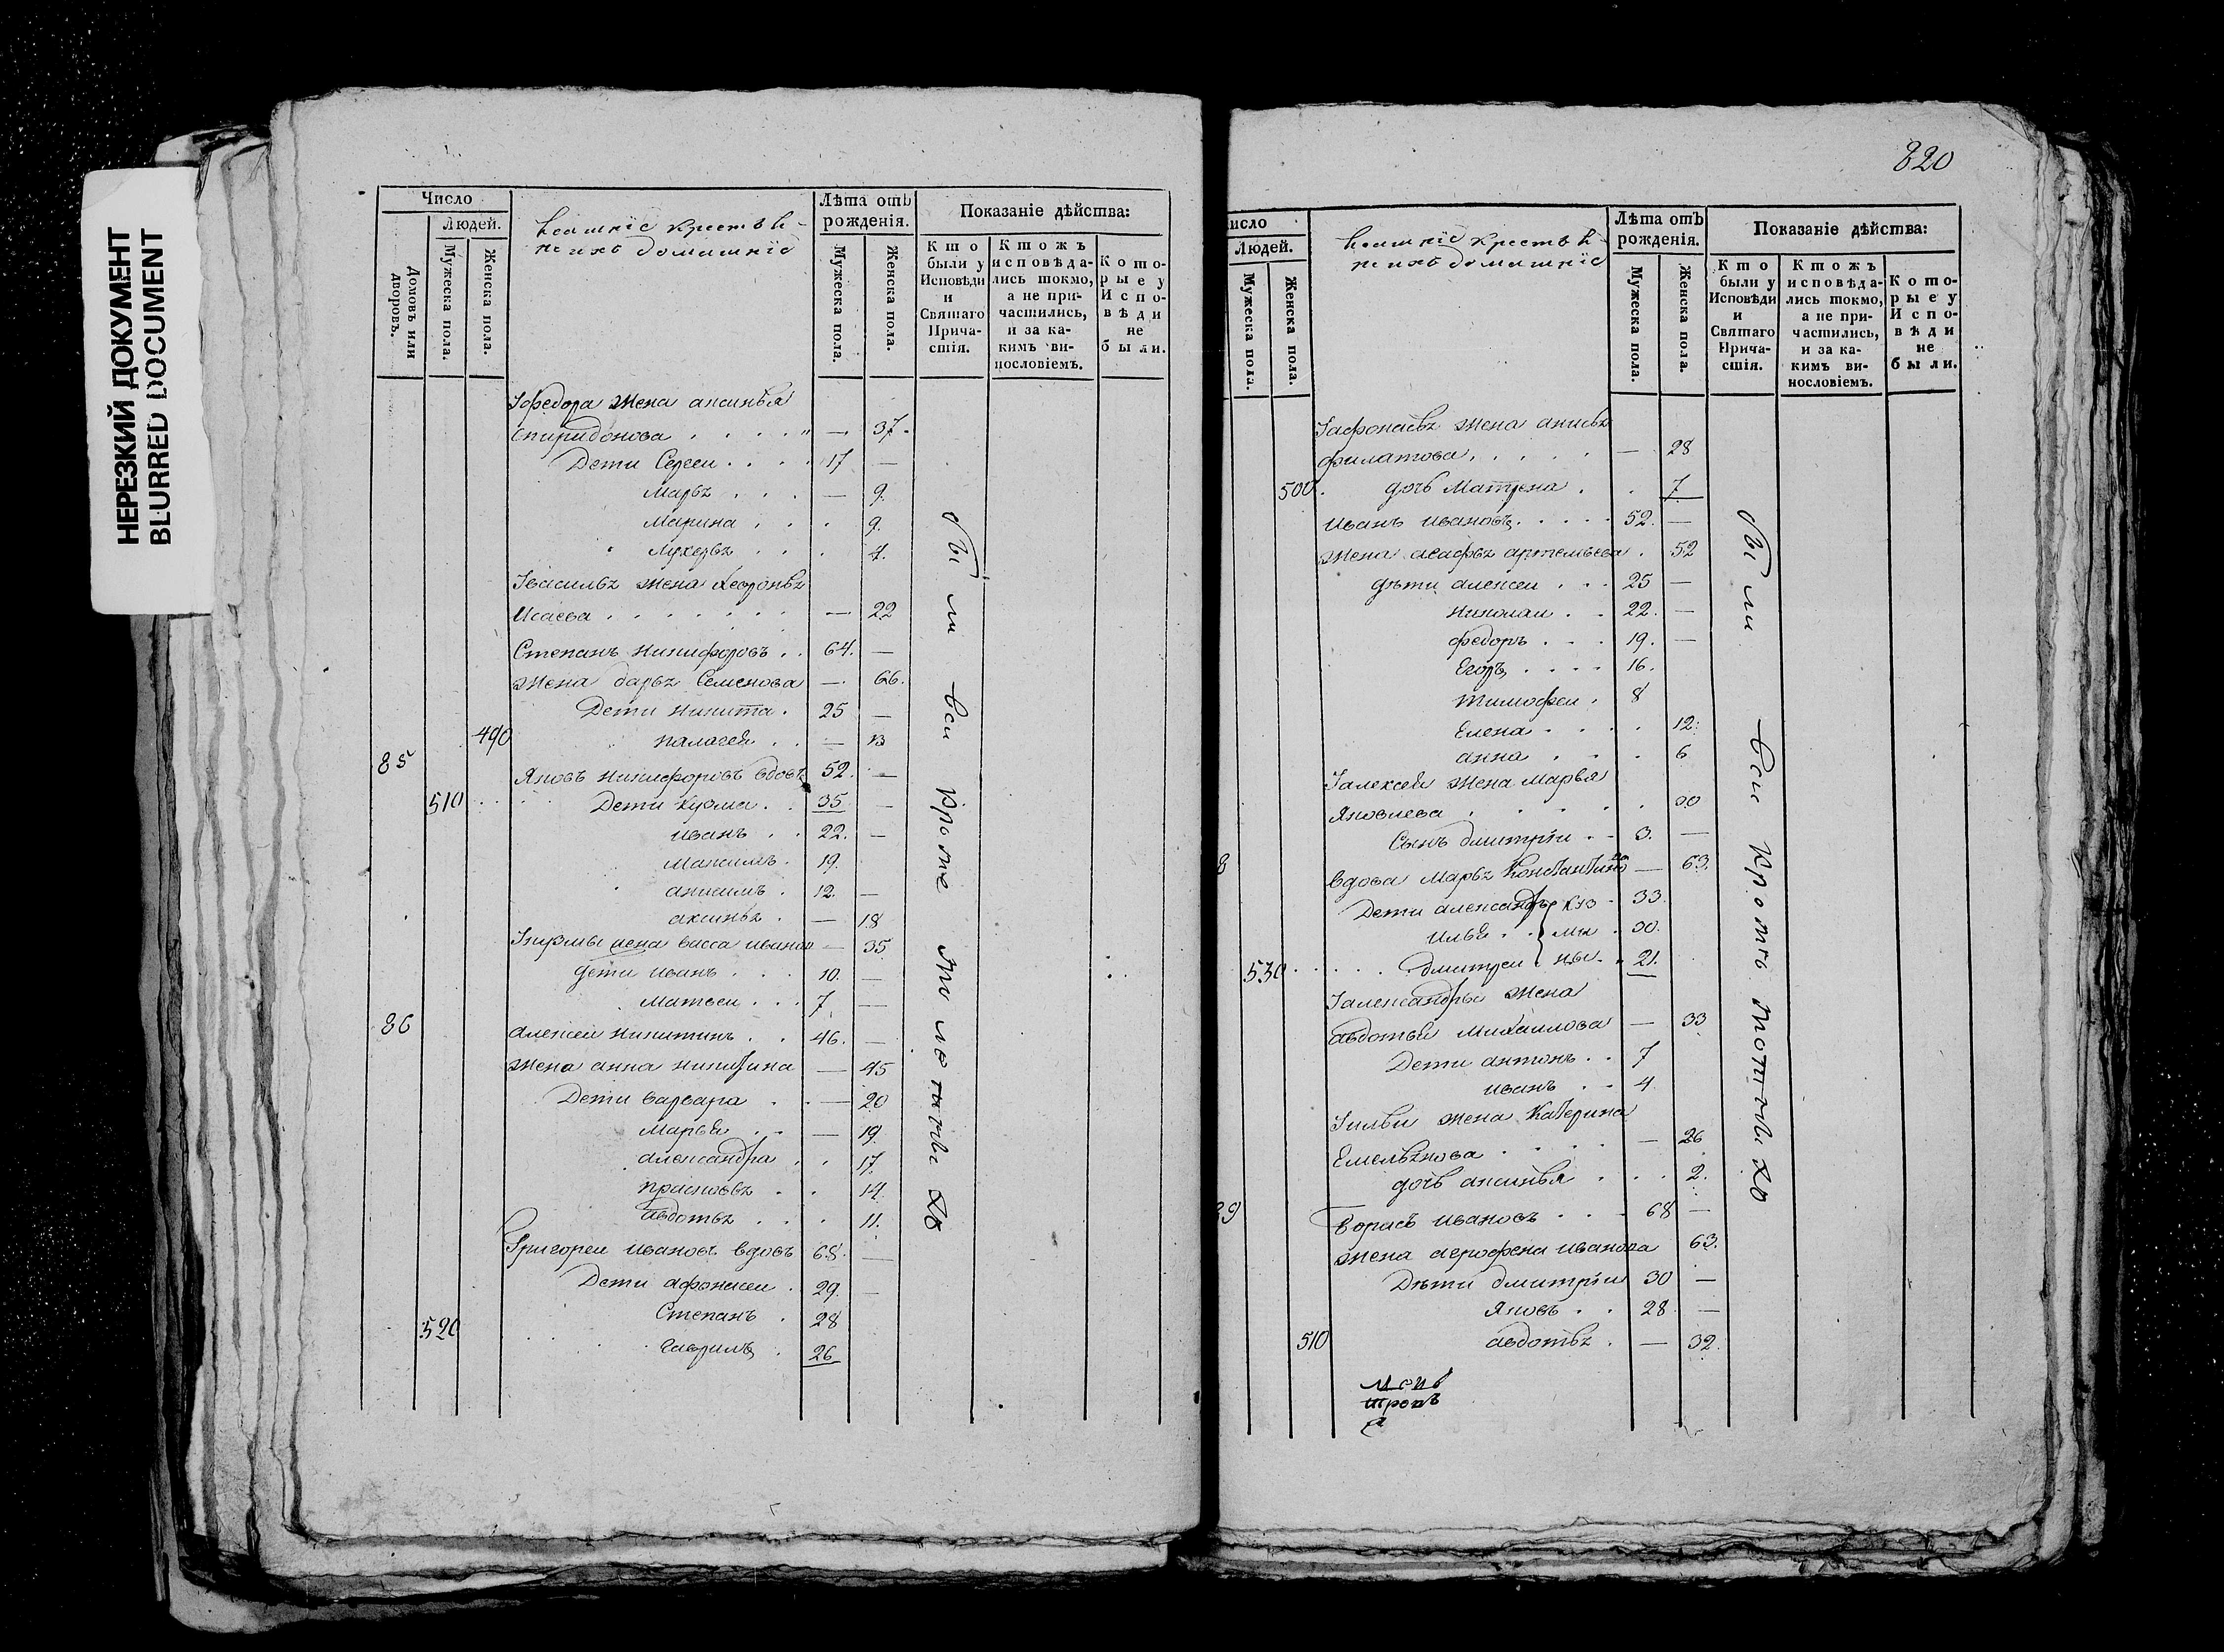 НЕРЕЗКИЙ ДОКУМЕНТ
BLURRED DOCUMENT
Число
Людей.
Домовъ или дворовъ.
Мужеска пола.
Женска пола.
Лѣта отъ рожденія.
Мужеска пола.
Женска пола.
Показаніе дѣйства:
Кто были у Исповѣди и Святаго Прича-стія.
Ктожъ исповѣда-лись токмо, а не при-частились, и за ка-кимъ ви-нословіемъ.
Кото-рые у Испо-вѣди не были.
домашніе
Іфедора жена аксинья
Спиридонова — 37
Дети Сергеи 17 —
Марья — 9
Марина 9
Лукерья 4
Івасилья жена Хефронья
Исаева — 22
Степанъ Никифоровъ 64 —
жена дарья Семенова — 66
Дети Никита 25 —
490 палагея — 13
85 Яковъ Никифоровъ вдовъ 52 —
510 Дети Кузма 35 —
иванъ 22 —
Максимъ 19
анисимъ 12 —
аксинья — 18
жена васса иванова — 35
дети иванъ 10 —
Матвеи 7 —
86 алексеи Никитинъ 46 —
жена анна Никитина — 45
Дети варвара — 20
Марья — 19
александра 17
прасковья 14
авдотья 11
Григореи ивановъ вдовъ 68 —
Дети афонасеи 29 —
Степанъ 28
520 гаврила 26
были вси кроме
820
исло
Людей.
Мужеска пола.
Женска пола.
домашніе
Лѣта отъ рожденія.
Мужеска пола.
Женска пола.
Показаніе дѣйства:
Кто были у Исповѣди и Святаго Прича-стія.
Ктожъ исповѣда-лись токмо, а не при-частились, и за ка-кимъ ви-нословіемъ.
Кото-рые у Испо-вѣди не были.
Іафонасья жена анисья
филатова — 28
500 дочь Матрена 7
иванъ ивановъ 52 —
жена агафья артемьева 52
дѣти алексеи 25 —
николаи 22 —
федоръ 19 —
Егоръ 16
тимофеи 8
Елена 12
анна 6
Іалексея жена Марья
Яковлева 30
Сынъ дмитріи 3 —
8 вдова Марья Константинова — 63
Дети александръ 33
илья 30
530 дмитреи 21
Іалександры жена
авдотья Михаилова — 33
Дети антонъ 7
иванъ 4
Іильи жена Катерина
Емельянова — 26
дочь аксинья 2
89 борисъ ивановъ 68 —
жена агрофена иванова 63
Дѣти дмитріи 30 —
Яковъ 28 —
510 авдотья — 32
были вси кроме